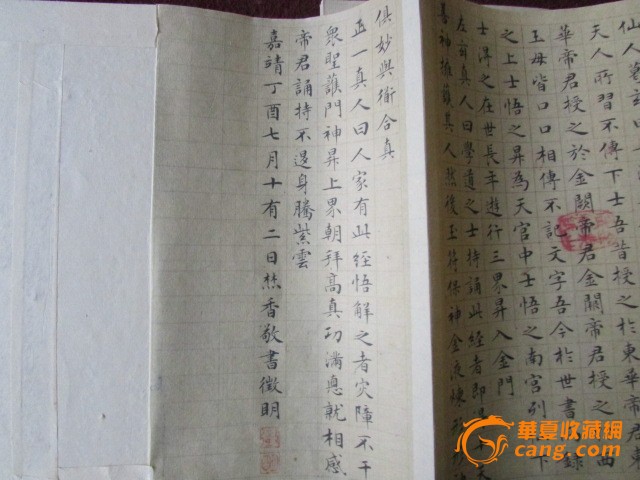 仙人葛
天人所習不傳下士吾昔授之於東華帝君東
華帝君授之於金闕帝君金闕帝君授之西
王母皆口口相傳不記文字吾今於世書錄
之上士悟之昇為天官中士悟之南宮列下
士得之在世長年遊行三界昇入金門
左玄真人曰學道之士持誦此經者即得十天
善神擁護其人然後玉符保神金液鍊形
俱妙與術合真
正一真人曰人家有此經悟解之者災障不干
衆聖護門神昇上界朝拜高真功滿惠就相感
帝君誦持不退身騰紫雲
嘉靖丁酉七月十有二日焚香敬書徵明
華夏收藏網
cang.com